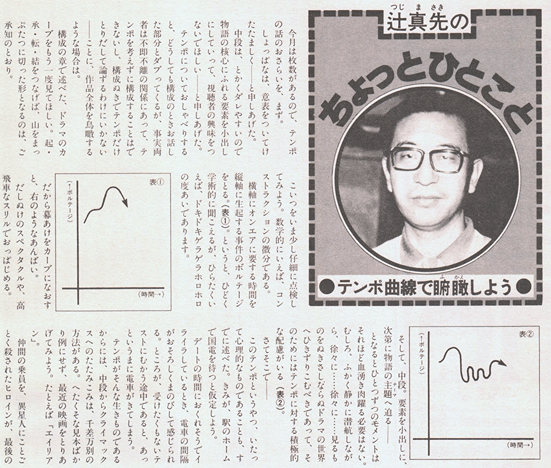 辻真先の
つじ まさき
ちょっとひとこと
●テンポ曲線で俯瞰しよう●
ふかん
今月は枚数があるので、テンポ
の話のおさらいを、まず。
しょっぱなは、意表をついてけ
たたましく——と申しあげた。
中段は、とかくダレやすいので
物語の核心にふれる要素を小出し
にしていって、視聴者の興味をつ
ないでほしい——と申しあげた。
テンポについておしゃべりする
と、どうしても構成のときお話し
た部分とダブってくるが、事実両
者は不即不離の関係にあって、テ
ンポを考えずに構成することはで
きないし、構成ぬきでテンポだけ
とりだして論ずるわけにいかない
——ことに、作品全体を鳥瞰する
ような場合は。
構成の章で述べた、ドラマのカ
ーブをもう一度見てほしい。起・
承・転・結をつなげば、山をまっ
ぷたつに切った形となるのは、ご
承知のとおり。
こいつをいま少し仔細に点検し
てみよう。数学的にいえば、コン
ストラクションの微分である。
横軸にオンエアに要する時間を
縦軸に生起する事件のボルテージ
をとる。(表①)というと、ひどく
学術的に聞こえるが、ひらたくい
えば、ドキドキゲラゲラホロホロ
の度あいであります。
表①
(↑ボルテージ)
(時間→)
だから幕あけをカーブになおす
と、右のようなあんばい。
だしぬけのスペクタクルや、高
飛車なスリルでおっぱじめる。
表②
(↑ボルテージ)
(時間→)
そして、中段。要素を小出しに、
次第に物語の主題へ迫る——
となるとひとつずつのモメントは
それほど血湧き肉躍る必要はない。
むしろ、ふかく静かに潜航しなが
ら、徐々に……徐々に……見るも
のをぬきさしならぬドラマの世界
へひきずりこむべきであって、そ
のためにはテンポに対する積極的
な配慮がいる(表②)。
さて、そこで——
このテンポというやつ、いたっ
て心理的なものであることも、す
でに述べた。きみが、駅のホーム
で国電を待つと仮定しよう。
デートの時間におくれそうでイ
ライラしているとき、電車の間隔
がおそろしくまのびして感じられ
る。ところが、受けたくもないテ
ストにむかう途中であると、あっ
というまに電車がきてしまう。
テンポがそんな生きものである
からには、中段からクライマック
スへのたたみこみは、千差万別の
方法がある。へたくそな見本ばか
り例にせず、最近の映画をとりあ
げてみよう。たとえば「エイリア
ン」。
仲間の乗員を、異星人にことご
とく殺されたヒロインが、最後の